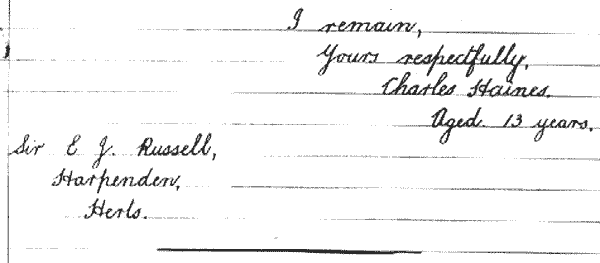 I remain,
Yours respectfully,
Charles Haines.
Aged 13 years.
Sir E J. Russell,
Harpenden,
Herts.